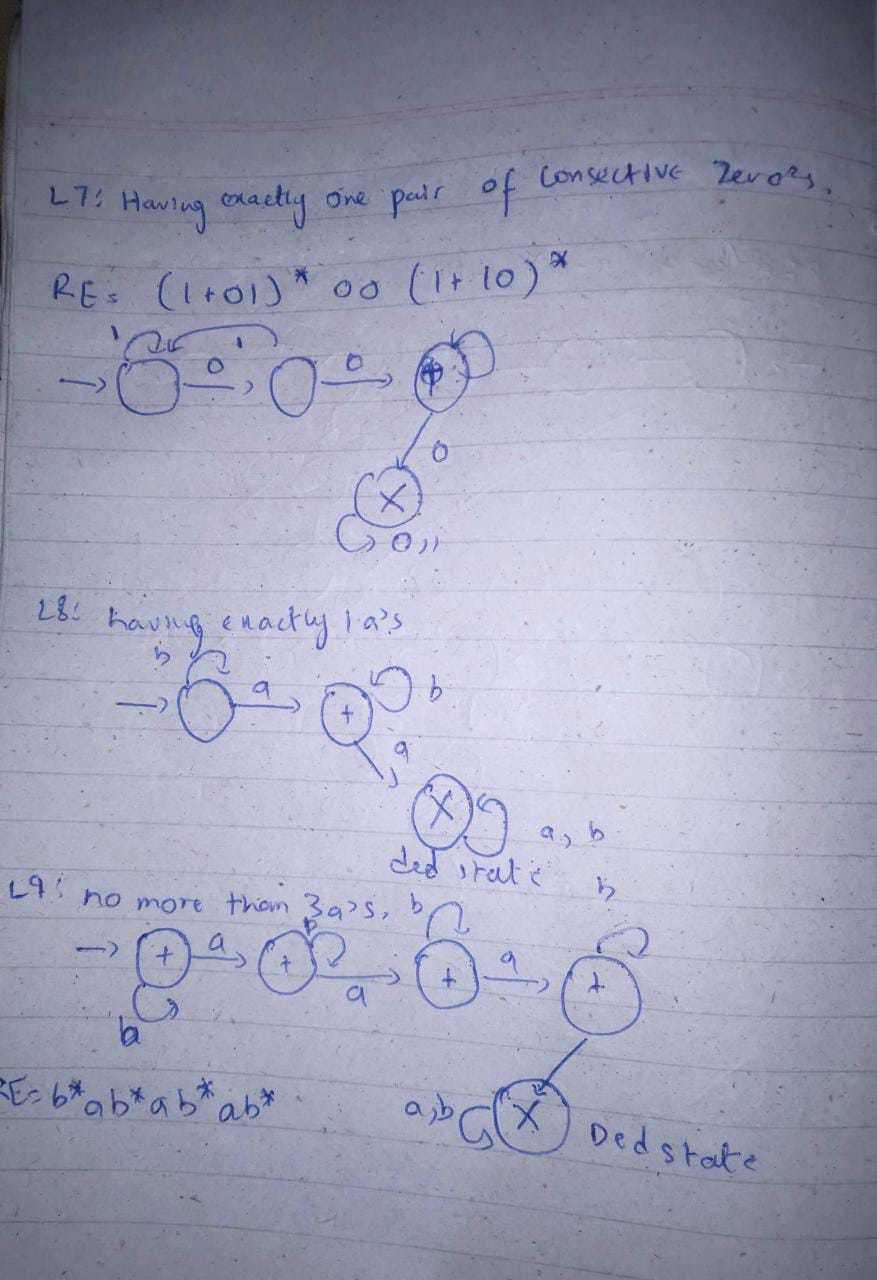 L7: Having exactly one pair of consective Zero's.
RE= (1+01)* 00 (1+10)*
1 1
0 0
0
X
0,1
L8: having exactly 1 a's
b a b
+
a
X
a, b
ded state
L9: no more than 3a's,
b b b
+ a + a + a +
b
RE= b*ab*ab*ab*
a,b X Ded state